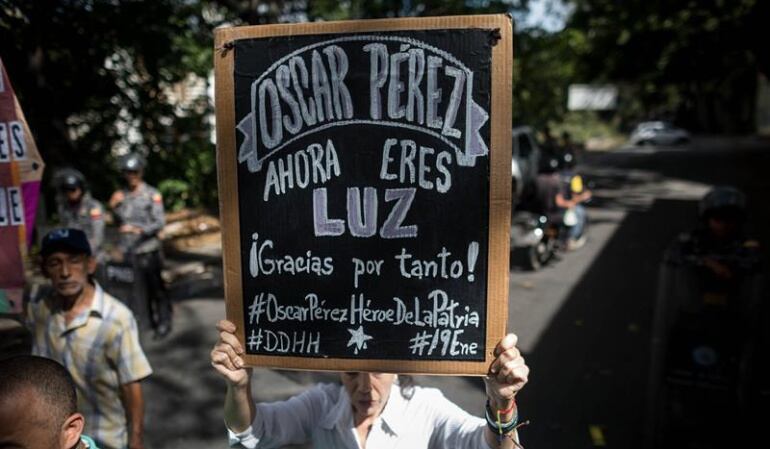 OSCAR PÉREZ
AHORA ERES
LUZ
¡Gracias por tanto!
#OscarPérezHéroeDeLaPatria
#DDHH #19Ene